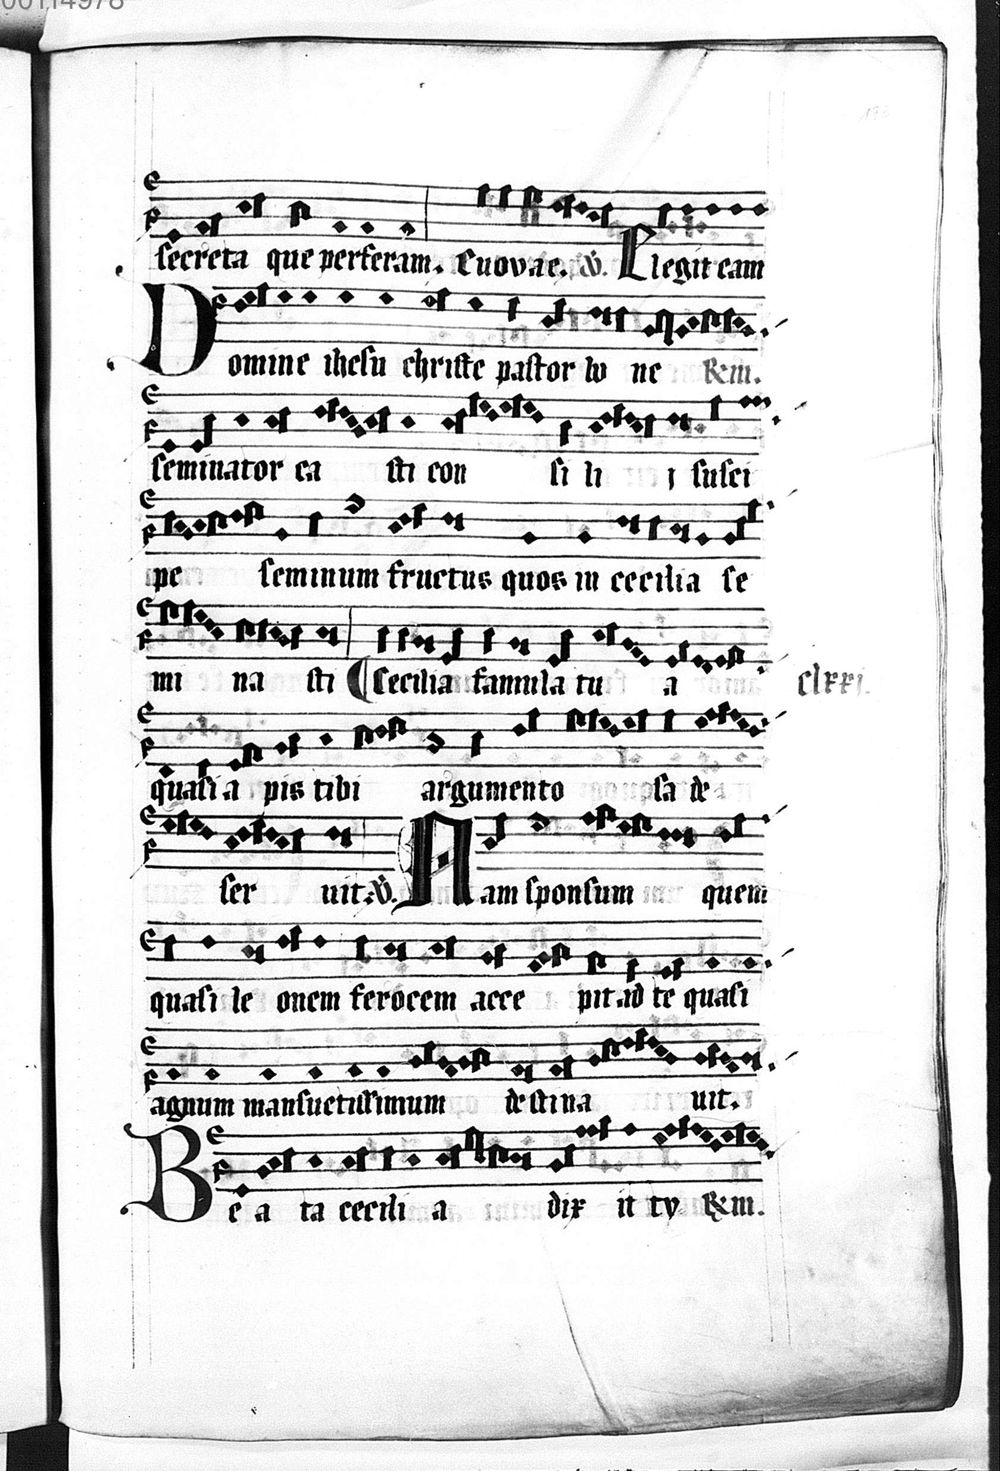 00114978
193
secreta que perferam. Euovae. V. Elegit eam
Domine ihesu christe pastor bo ne Rm.
seminator ca sti con si li j susci
pe seminum fructus quos in cecilia se
mi na sti Cecilia famula tu a clxxj.
quasi a pis tibi argumento sa de
ser uit. V. Nam sponsum quem
quasi le onem ferocem acce pit ad te quasi
agnum mansuetissimum destina uit.
Be a ta cecili a dix it ty Rm.